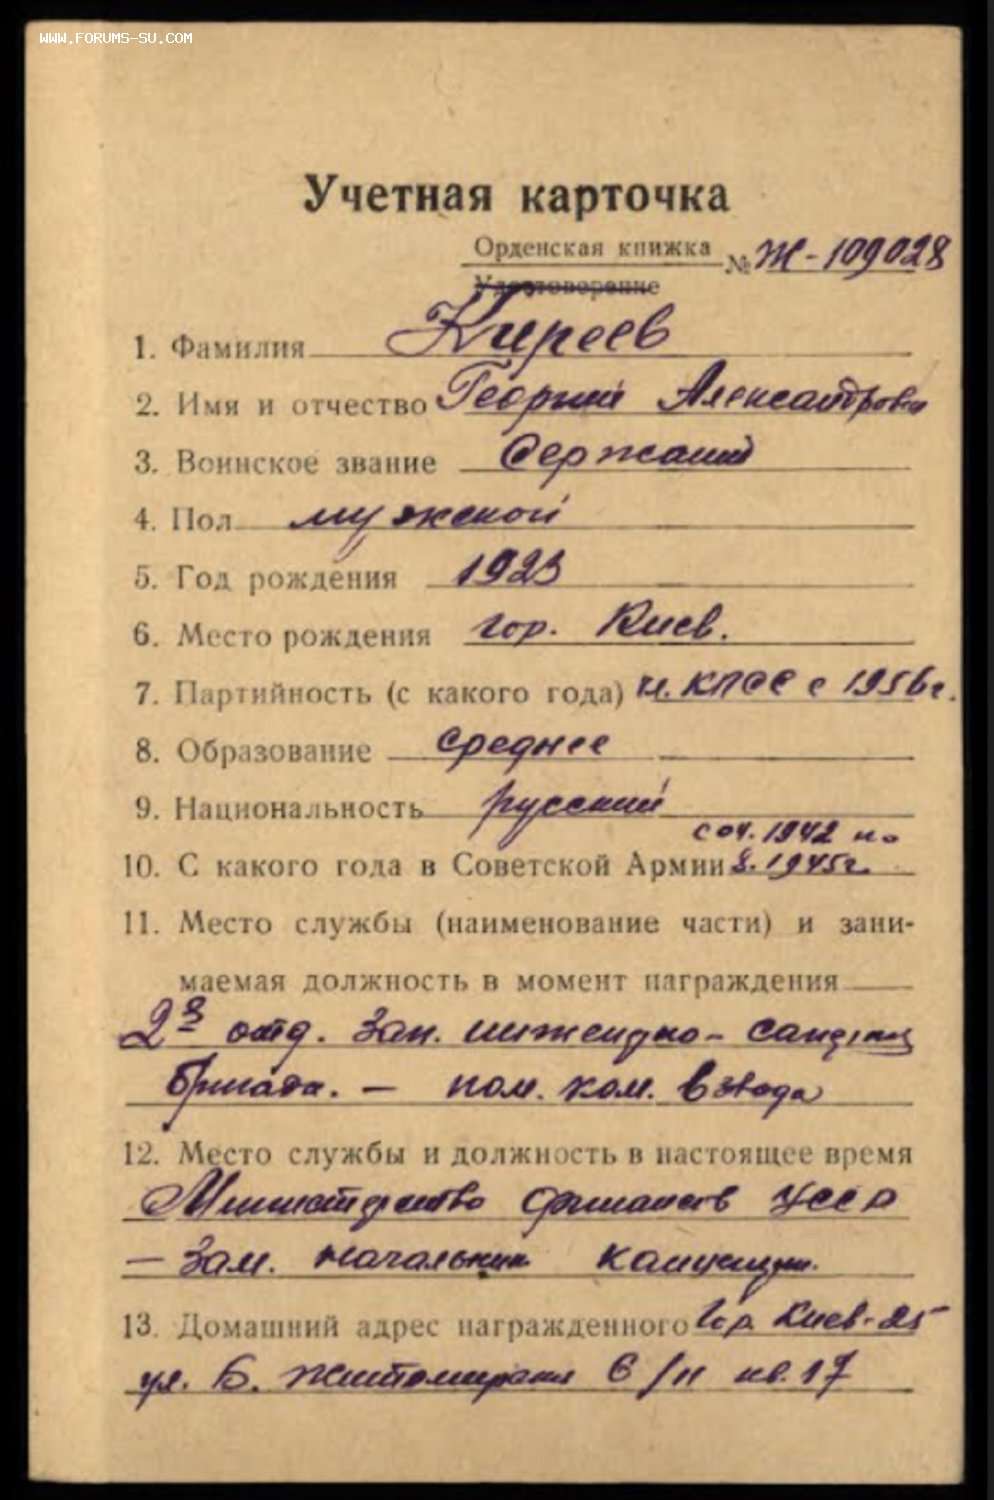 WWW.FORUMS-SU.COM
Учетная карточка
Орденская книжка № Ж-109028
Удостоверение
1. Фамилия Киреев
2. Имя и отчество Георгий Александрович
3. Воинское звание Сержант
4. Пол мужской
5. Год рождения 1923
6. Место рождения гор. Киев.
7. Партийность (с какого года) чл. КПСС с 1956г.
8. Образование среднее
9. Национальность русский
с 04.1942 по
10. С какого года в Советской Армии 8.1945г.
11. Место службы (наименование части) и зани-
маемая должность в момент награждения
2я отд. зап. инженерно-
бригада. — пом. ком. взвода
12. Место службы и должность в настоящее время
Министерство финансов УССР
— Зам. начальник
13. Домашний адрес награжденного гор. Киев-25
ул. Б. Житомирская 6/11 кв. 17